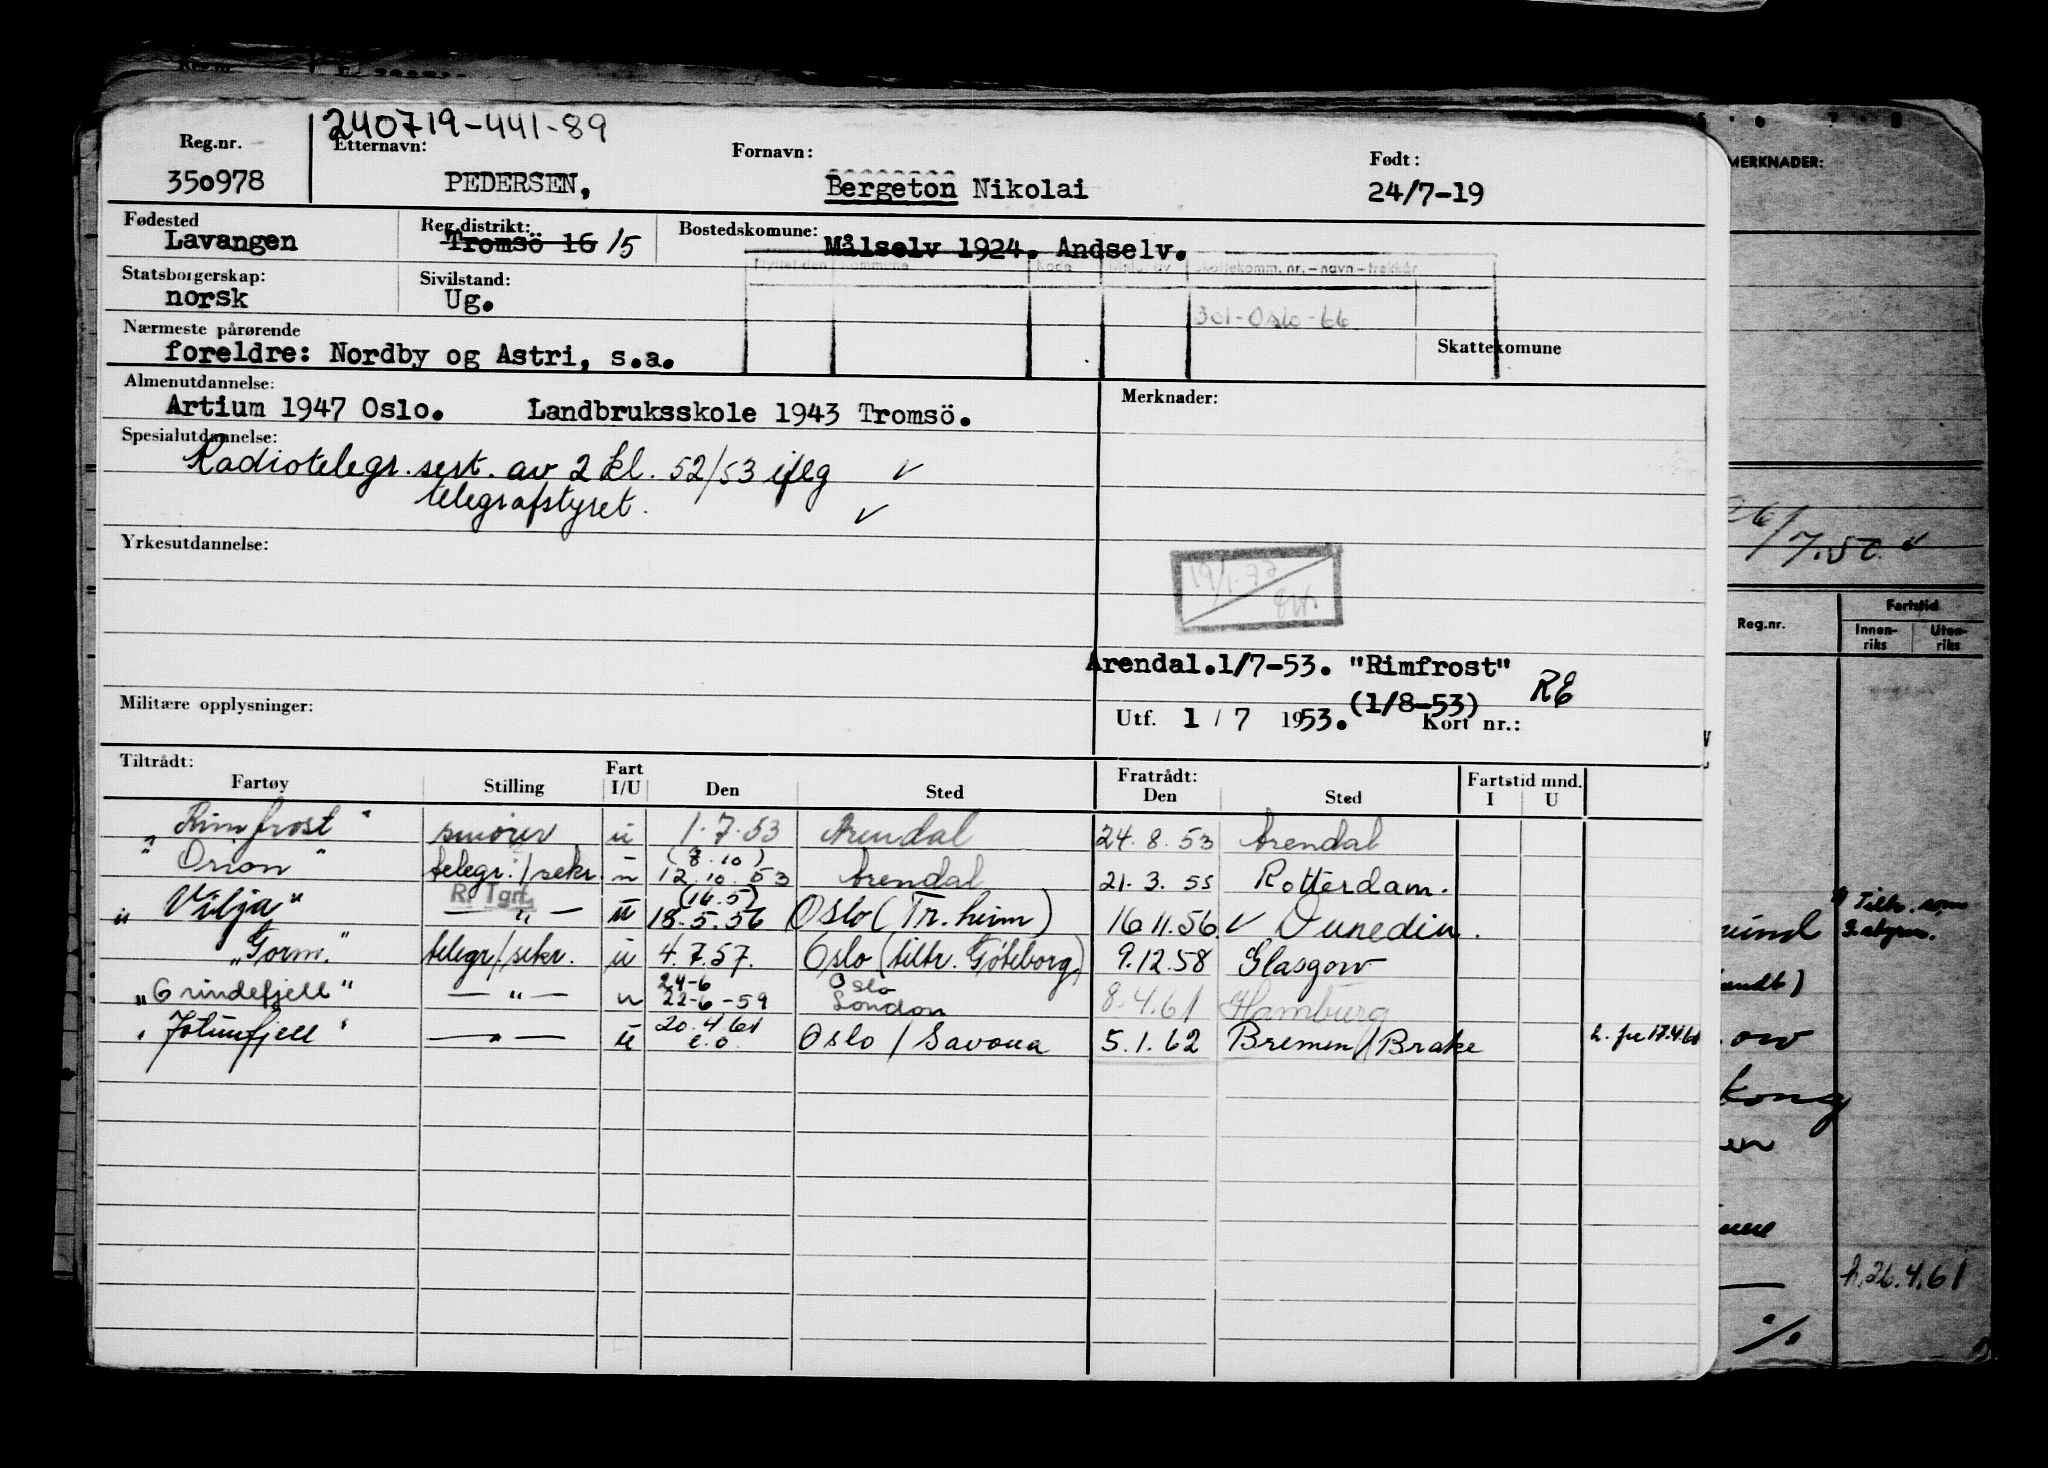 240719-441-89
Reg.nr. Etternavn: Fornavn: Født:
350978 PEDERSEN, Bergeton Nikolai 24/7-19
Fødested Reg.distrikt: Bostedskomune:
Lavangen Tromsö 16 15 Målselv 1924. Andselv.
Statsborgerskap: Sivilstand:
norsk Ug.
301-Oslo-66
Nærmeste pårørende Skattekomune
foreldre: Nordby og Astri, s.a.
Almenutdannelse: Merknader:
Artium 1947 Oslo. Landbruksskole 1943 Tromsö.
Spesialutdannelse:
Radiotelegr. sert. av 2 kl. 52/53 iflg ✓
telegrafstyret. ✓
Yrkesutdannelse:
Arendal.1/7-53. "Rimfrost" RE
(1/8-53)
Militære opplysninger: Utf. 1 / 7 1953. Kort nr.:
Tiltrådt: Fratrådt: Fartstid mnd.
Fartøy Stilling Fart I/U Den Sted Den Sted I U
"Rimfrost" smører u 1.7.53 Arendal 24.8.53 Arendal
(8.10)
"Orion" telegr./sekr. u 12.10.53 Arendal 21.3.55 Rotterdam.
R. Tgrf. (16.5)
"Vilja" — " — u 18.5.56 Oslo (Tr.heim) 16.11.56. ✓ Dunedin.
"Gorm." telegr/sekr. u 4.7.57. Oslo (tiltr. Göteborg) 9.12.58 Glasgow
24-6 Oslo
"Grindefjell" — " — u 22-6-59 London 8.4.61 Hamburg
20.4.61
"Jotunfjell" — " — u e.o. Oslo / Savona 5.1.62 Bremen / Brake h. fra 17.4.61
MERKNADER:
26/7.50 ✓
Reg.nr. Fartstid
Innen-riks Uten-riks
h.26.4.61